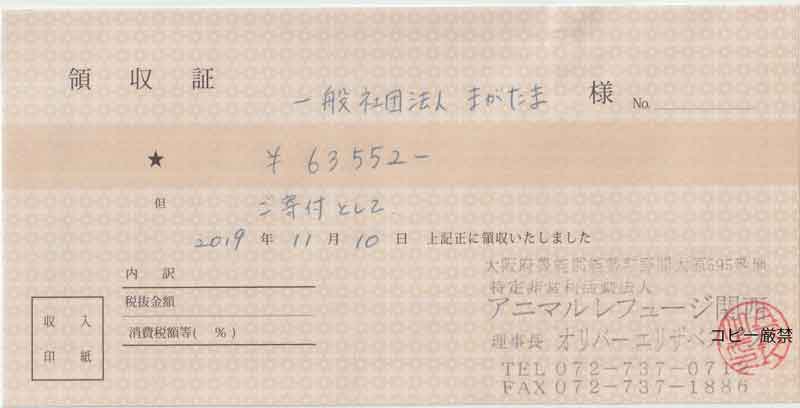 領収証
一般社団法人 まがたま 様 No.
★ ¥ 63552-
但 ご寄付として
2019 年 11 月 10 日 上記正に領収いたしました
内 訳
税抜金額
消費税額等( % )
収入
印紙
595番地
特定非営利活動法人
アニマルレフュージ関西
理事長 オリバーエリザベス
コピー厳禁
TEL 072-737-071
FAX 072-737-1886